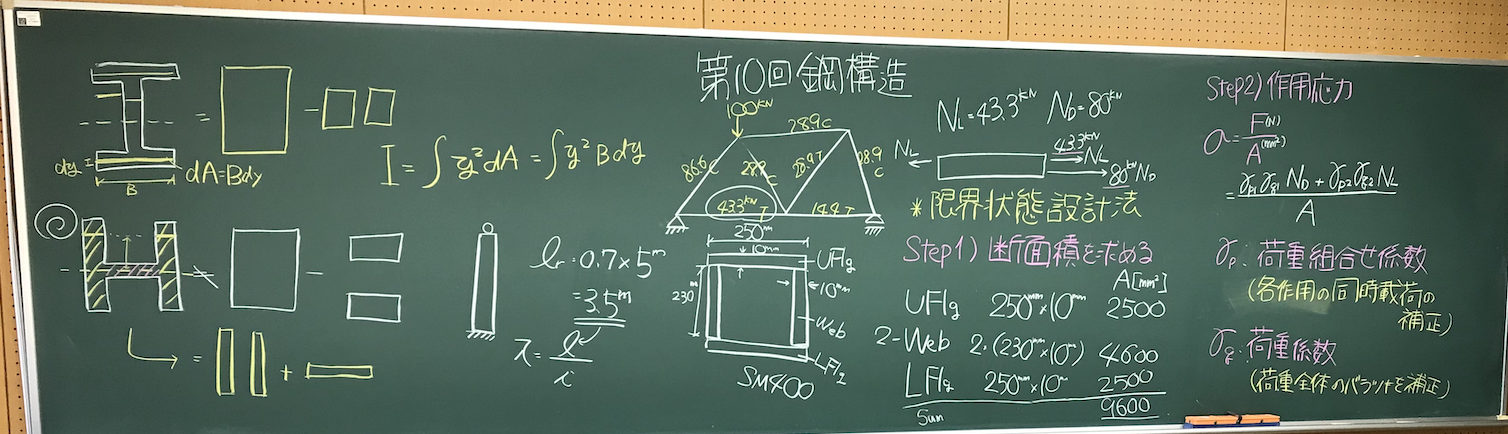 第10回鋼構造
dy
B
dA=Bdy
=
−
I = ∫y²dA = ∫y² Bdy
−
= +
lr = 0.7×5ᵐ
= 3.5ᵐ
λ = l/i
100kN
28.9C
86.6C
28.9C
28.9T
28.9C
43.3kN T
14.4T
250mm
10mm
UFlg
230mm
10mm
Web
LFlg
SM400
NL=43.3kN ND=80kN
NL
43.3kN
NL
80kN ND
*限界状態設計法
Step1)断面積を求める
A[mm²]
UFlg 250mm×10mm 2500
2-Web 2・(230mm×10m) 4600
LFlg 250mm×10m 2500
Sum 9600
Step2)作用応力
σ = F(N)/A(mm²)
= γp1γg1 ND + γp2γg2 NL / A
γp:荷重組合せ係数
(各作用の同時載荷の
補正)
γg:荷重係数
(荷重全体のバラツキを補正)